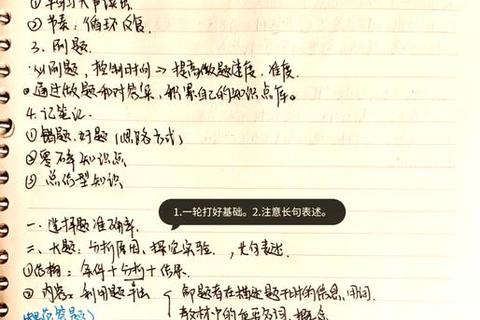 ②节奏:循环反复
3、刷题
刷题,控制时间→提高做题速度、准度
·通过做题和对答案,积累自己的知识点库。
4.记笔记
①错题、好题(思路方式)
②零碎知识点
③总结型知识
1.一轮打好基础。2.注意长句表述。
一、选择题准确率
二、大题:分析原因、探究实验,长句表述。
条件+分析+结果
②内容:利用题干
即题者在描述题干时的信息、用词
教材中的 名词、概念